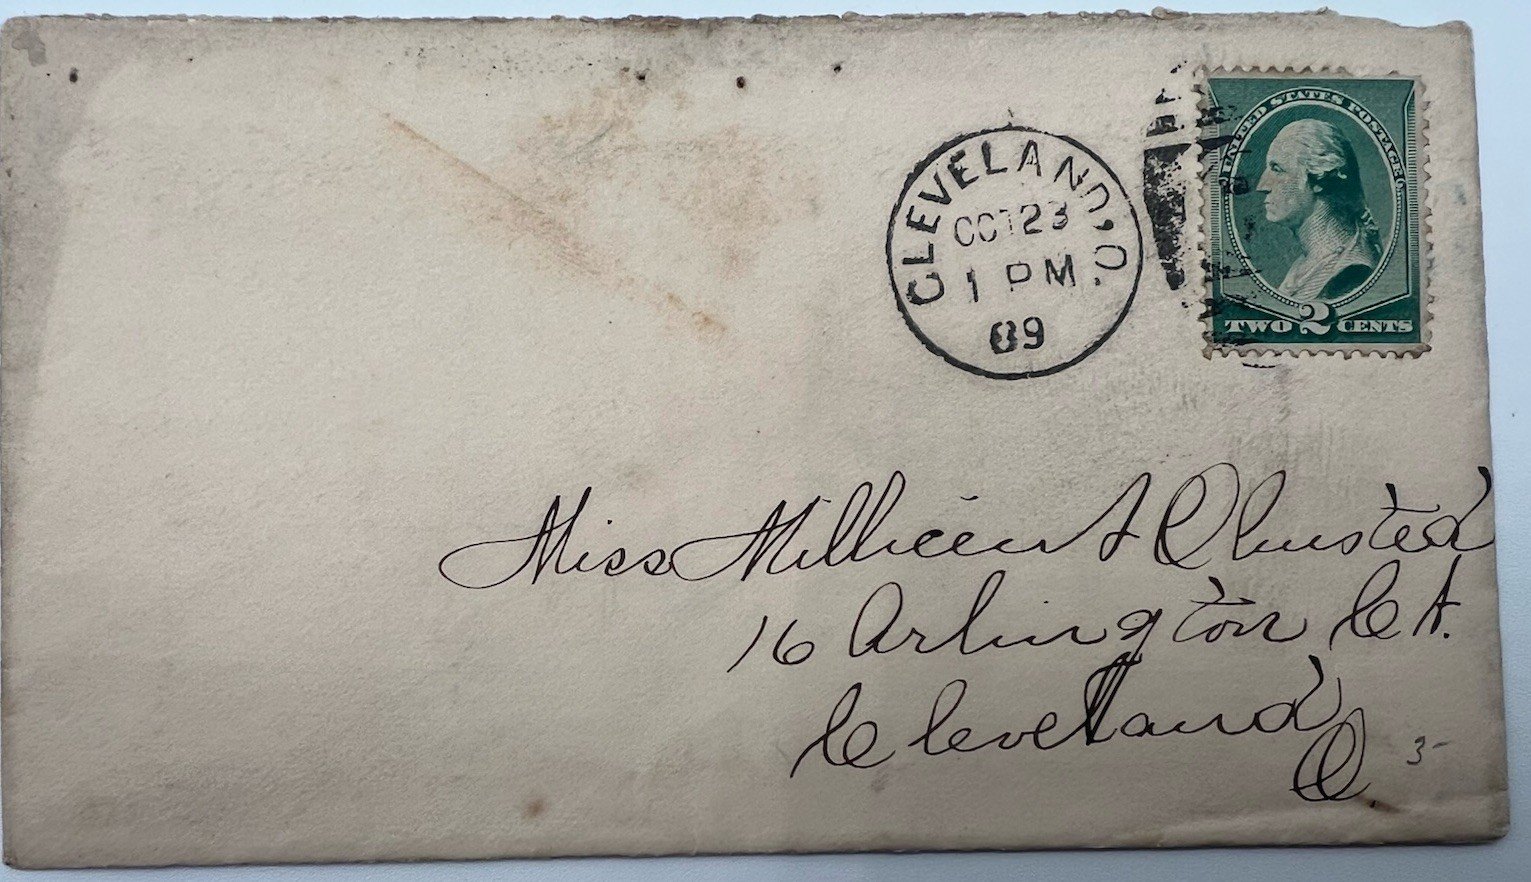 UNITED STATES POSTAGE
TWO 2 CENTS
CLEVELAND, O.
OCT 23
1 PM
89
Miss Millicent Olmsted
16 Arlington Ct.
Cleveland
O
3-